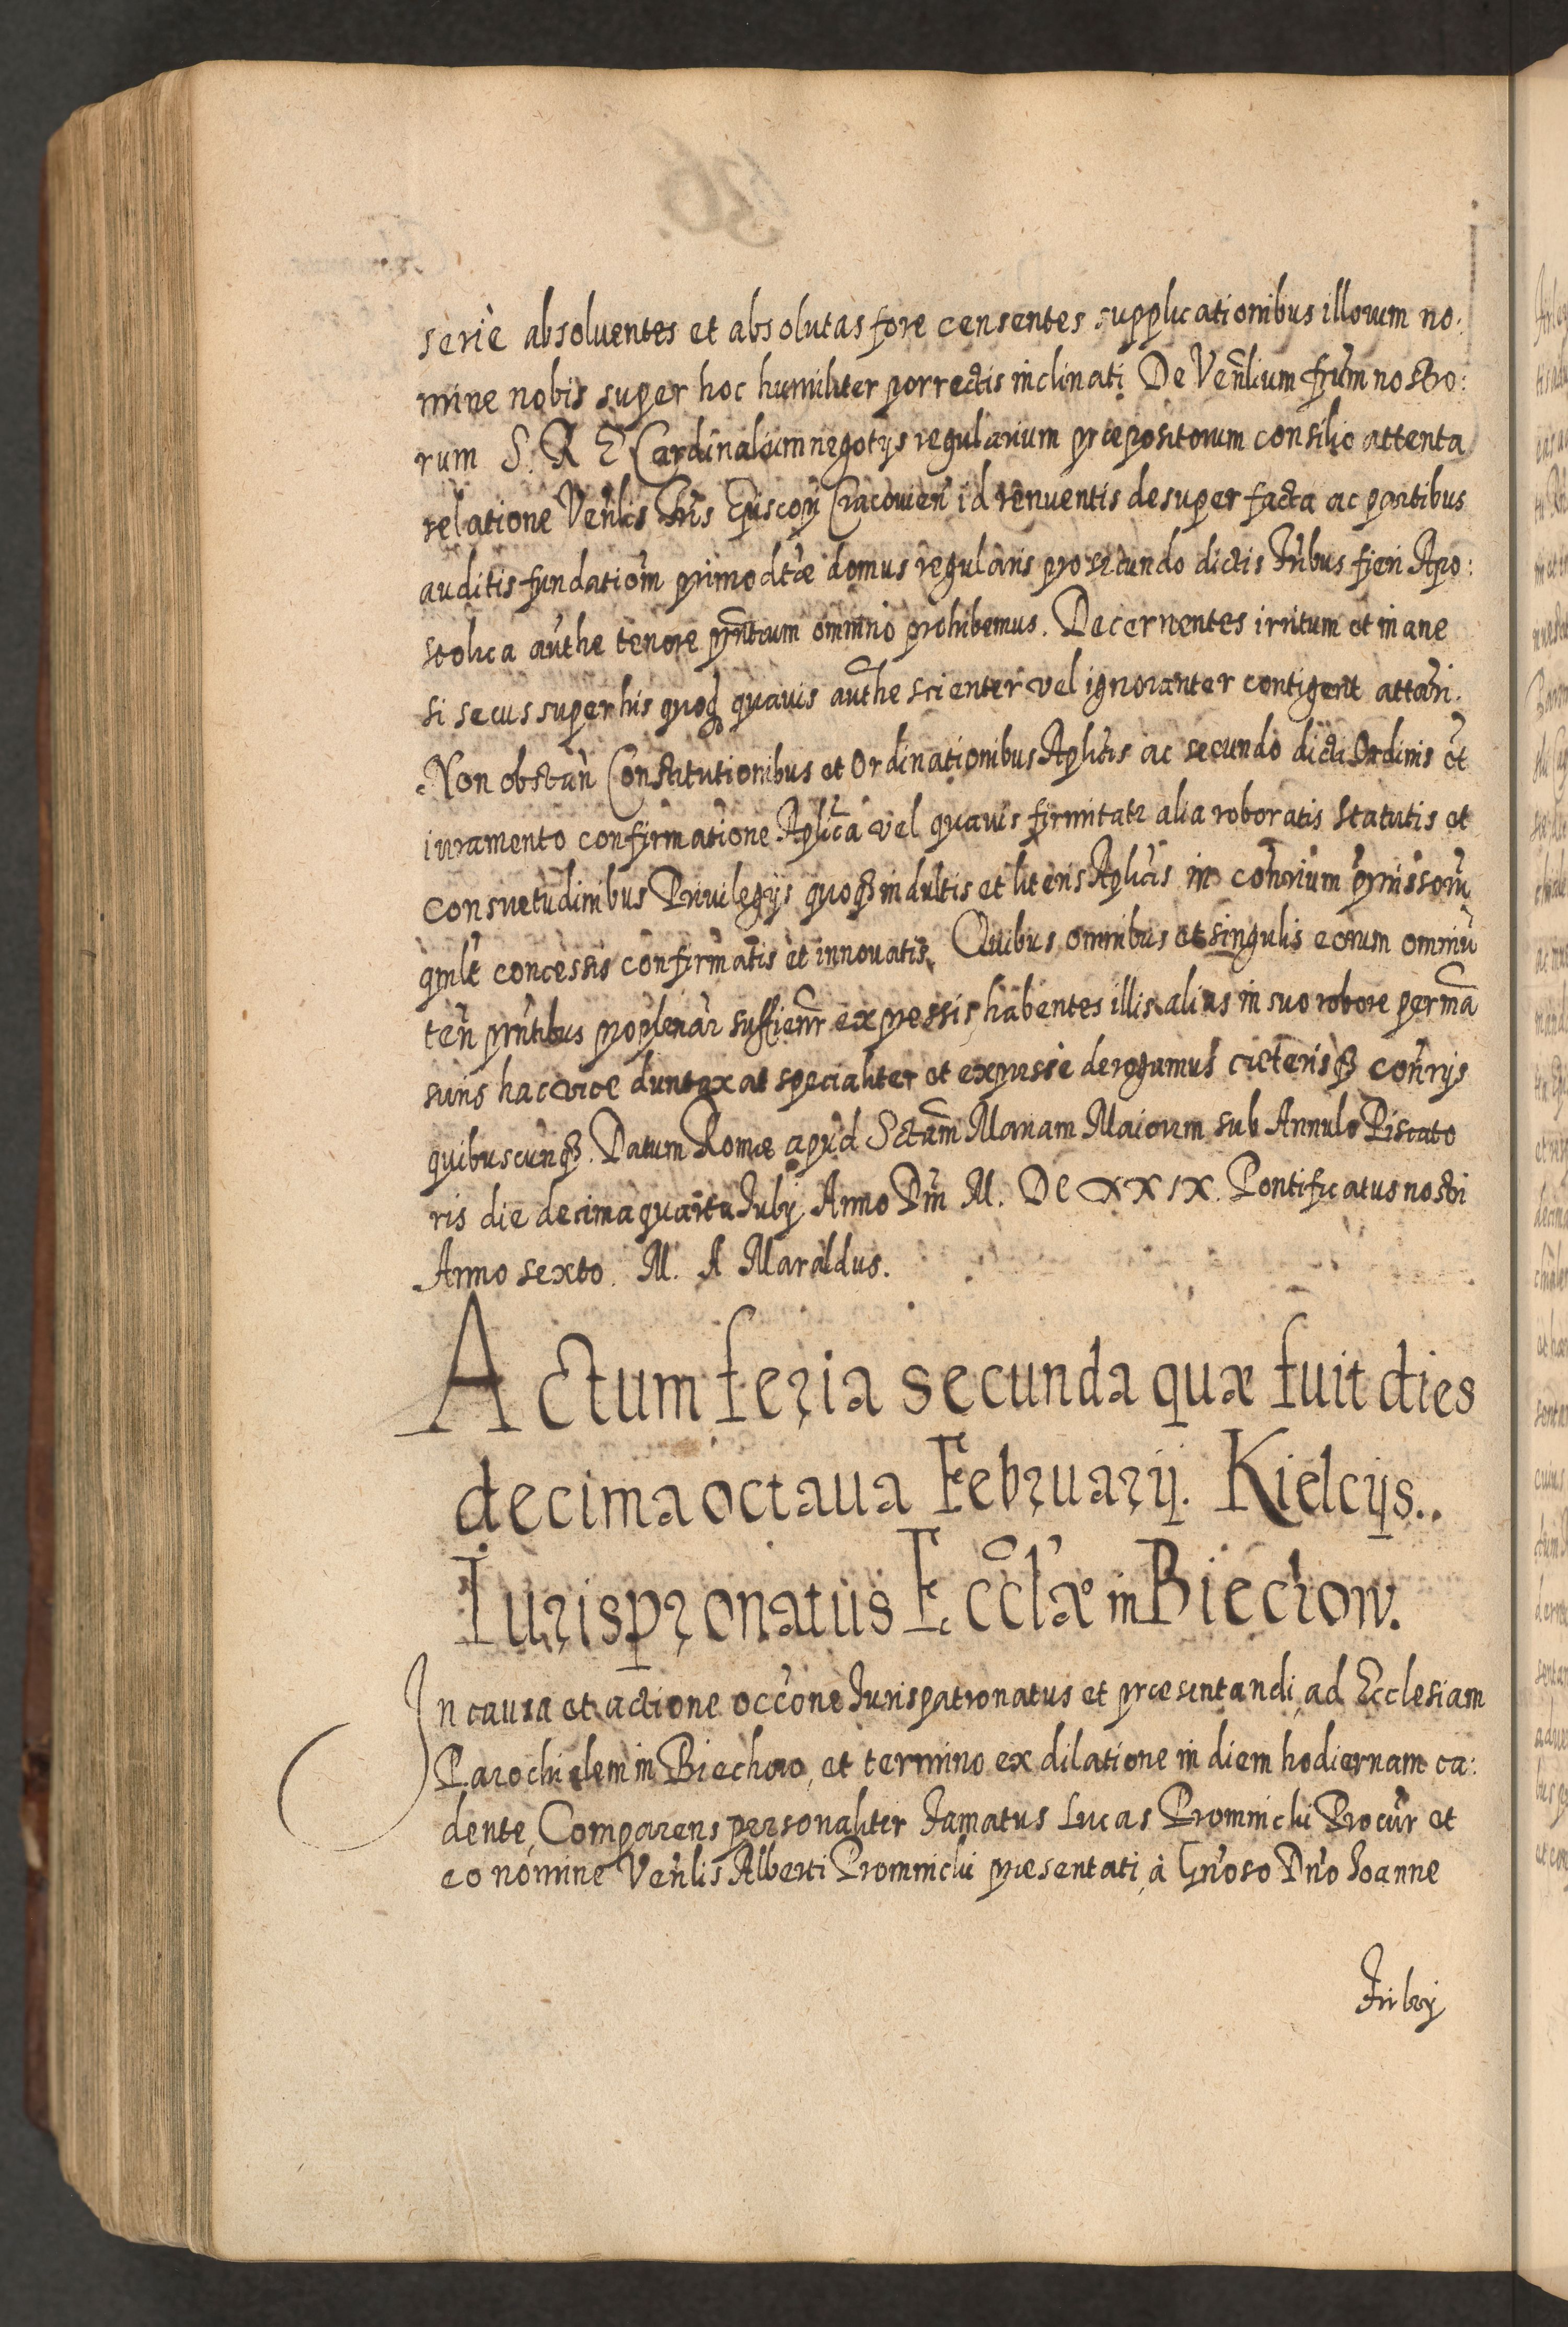 serie absoluentes et absolutas fore censentes supplicationibus illorum no:
mine nobis super hoc humiliter porrectis inclinati De Venlium frum nostro:
rum S. R E Cardinalium negotijs regularium præpositorum consilio attenta
relatione Venlis Fris Episcopi Cracouien id renuentis desuper facta ac partibus
auditis fundatiom primo dtæ domus regularis pro secundo dictis Fribus fieri Apo:
stolica authe tenore pntium omnino prohibemus. Decernentes irritum et inane
si secus super his quoq quauis authe scienter vel ignoranter contigerit attari.
Non obstan Constitutionibus et Ordinationibus Aplicis ac secundo dicti Ordinis et
iuramento confirmatione Aplica vel quauis firmitate alia roboratis statutis et
consuetudinibus Priuilegijs quoq indultis et literis Aplicis in conrium prmissorum
qmlt concessis confirmatis et innouatis. Quibus omnibus et singulis eorum omniu
ten pntibus pro plenar sufficienr expressis habentes illis alias in suo robore perma
suris hac vice duntaxat specialiter et expresse derogamus cæterisq conrijs
quibuscunq. Datum Romæ apud Sctam Mariam Maiorem sub Annulo Piscato
ris die decima quarta July Anno Dm M. DC XXIX. Pontificatus nostri
Anno sexto. M. A Maraldus.
Actum feria secunda quæ fuit dies
decima octaua Februarij. Kielcijs..
Iurispronatus Eccl'æ in Biechow.
In causa et actione occone Iurispatronatus et præsentandi ad Ecclesiam
Parochialem in Biechow, et termino ex dilatione in diem hodiernam ca:
dente, Comparens personaliter Famatus Lucas Promnicki Procur et
eo nomine Venlis Alberti Promnicki præsentati, à Gnoso Dno Ioanne